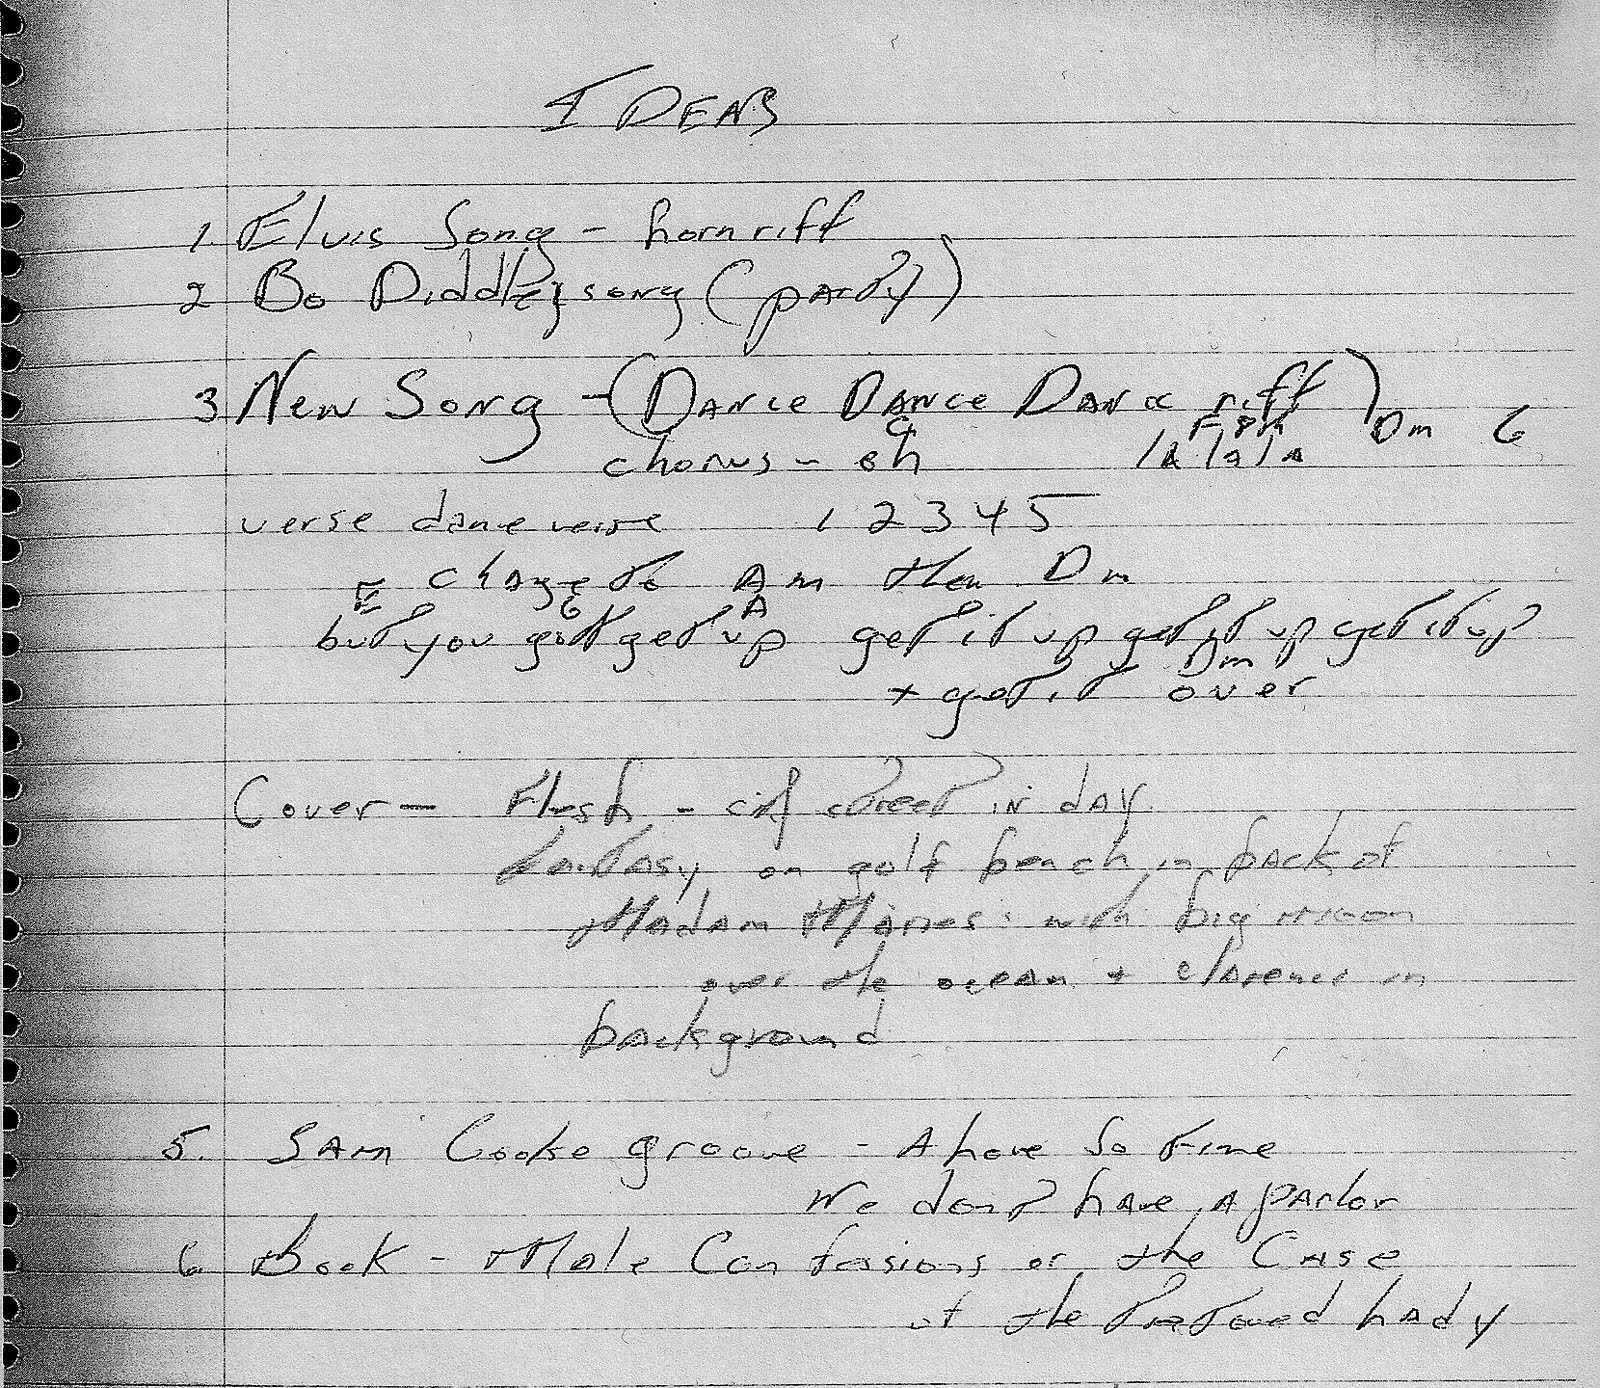 IDEAS
1. Elvis Song - horn riff
2 Bo Diddley song (party)
3 New Song - (DANCE DANCE DANCE riff) Dm G
chorus - oh la la la
verse dance verse 1 2 3 4 5
change to Am then Dm
E G A
but you gott get up get it up get it up get it up
Dm
+ get it over
Cover - Flesh - street in day
fantasy on golf bench in back of
Madam Maries with big moon
over the ocean + clarence in
background
5. SAM Cooke groove - A love So Fine
We don't have A parlor
6 Book - Male Confusions or the CASE
of the Tattooed Lady